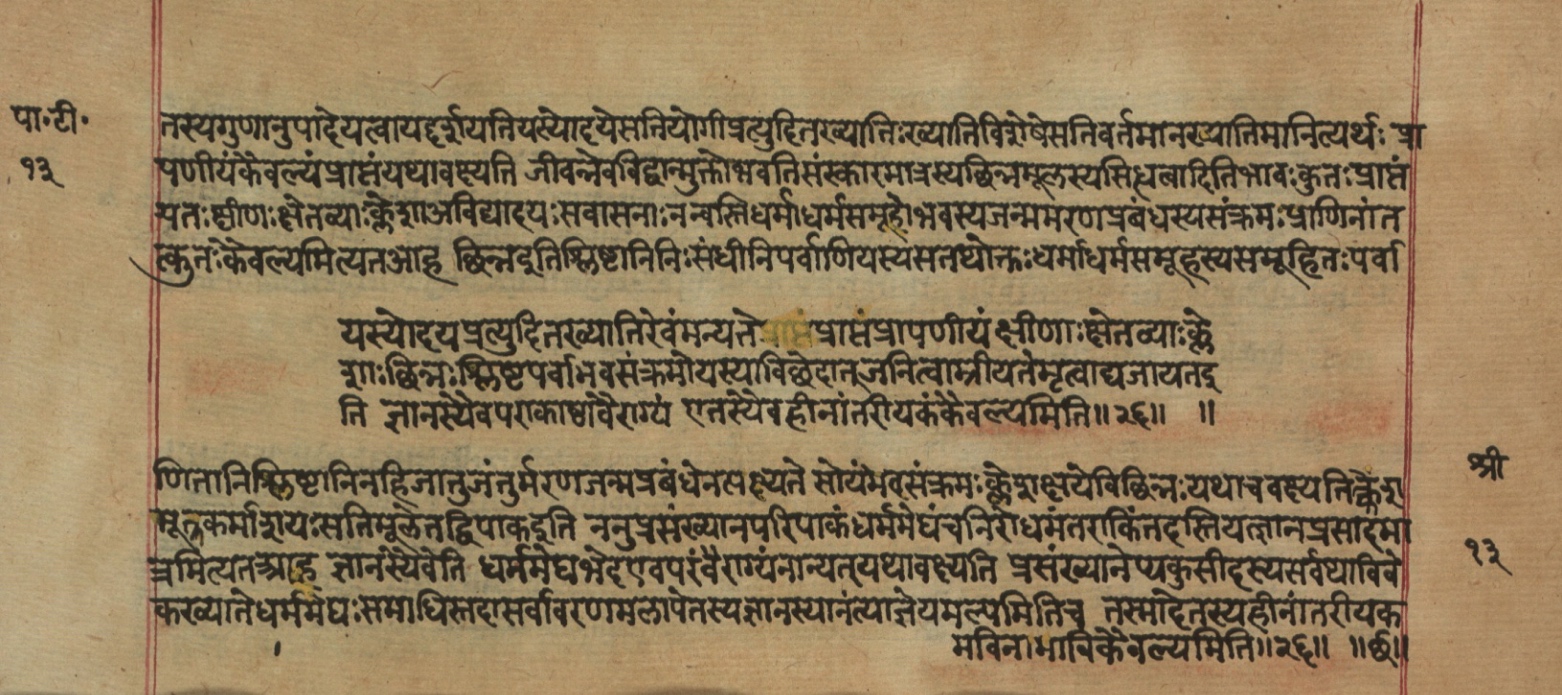 पा॰टी॰
१३
तस्यगुणानुपादेयत्वायदर्शयतियस्योदयेसतियोगीप्रत्युदितख्यातिःख्यातिविशेषेसतिवर्तमानख्यातिमानित्यर्थः प्रा
पणीयंकैवल्यंप्राप्तंयथावक्ष्यति जीवन्नेवविद्वान्मुक्तोभवतिसंस्कारमात्रस्यछिन्नमूलस्यसिद्धत्वादितिभावःकुतःप्राप्तं
यतःक्षीणाःक्षेतव्याःक्लेशाअविद्यादयःसवासनाःनन्वस्तिधर्माधर्मसमूहोभवस्यजन्ममरणप्रबंधस्यसंक्रमःप्राणिनांत
त्कुतःकैवल्यमित्यतआह छिन्नइतिश्लिष्टानिनिःसंधीनिपर्वाणियस्यसतथोक्तःधर्माधर्मसमूहस्यसमूहिनःपर्वा
यस्योदयप्रत्युदितख्यातिरेवंमन्यते प्राप्तंप्रापणीयं क्षीणाःक्षेतव्याःक्ले
शाःछिन्नःश्लिष्टपर्वाभवसंक्रमोयस्याविछेदात्जनित्वाम्रीयतेमृत्वाद्यजायतइ
ति ज्ञानस्यैवपराकाष्ठावैराग्यं एतस्यैवहीनांतरीयकंकैवल्यमिति॥२६॥ ॥
णितानिश्लिष्टानिनहिजातुजंतुर्मरणजन्मप्रबंधेनसक्ष्यते सोयंमेवसंक्रमःक्लेशक्षयेविछिन्नःयथाचवक्ष्यतिक्लेश
श्री
मूलकर्माशयःसतिमूलेतद्विपाकइति ननुप्रसंख्यानपरिपाकंधर्ममेघंचनिरोधमंतराकिंतदस्तियत्ज्ञानप्रसादमा
१३
त्रमित्यतआह ज्ञानस्यैवेति धर्ममेघभेदएवपरंवैराग्यंनान्यत्यथावक्ष्यति प्रसंख्यानेप्यकुसीदस्यसर्वथाविवे
कख्यातेधर्ममेघःसमाधिस्तदासर्वावरणमलापेतस्यज्ञानस्यानंत्याज्ञेयमल्पमितिच तस्मादेतस्यहीनांतरीयक
मविनाभाविकैवल्यमिति॥२६॥ ॥छ॥